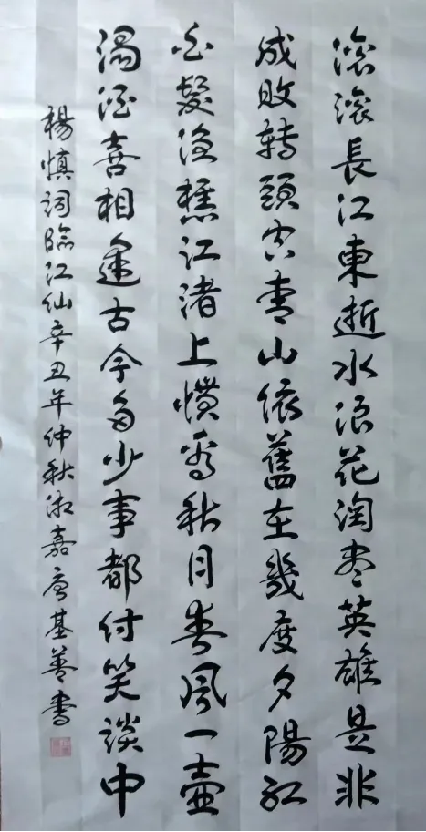 滾滾長江東逝水浪花淘盡英雄是非
成敗轉頭空青山依舊在幾度夕陽紅
白髮漁樵江渚上慣看秋月春風一壺
濁酒喜相逢古今多少事都付笑談中
楊慎詞臨江仙辛丑年仲秋湘嘉唐基善書